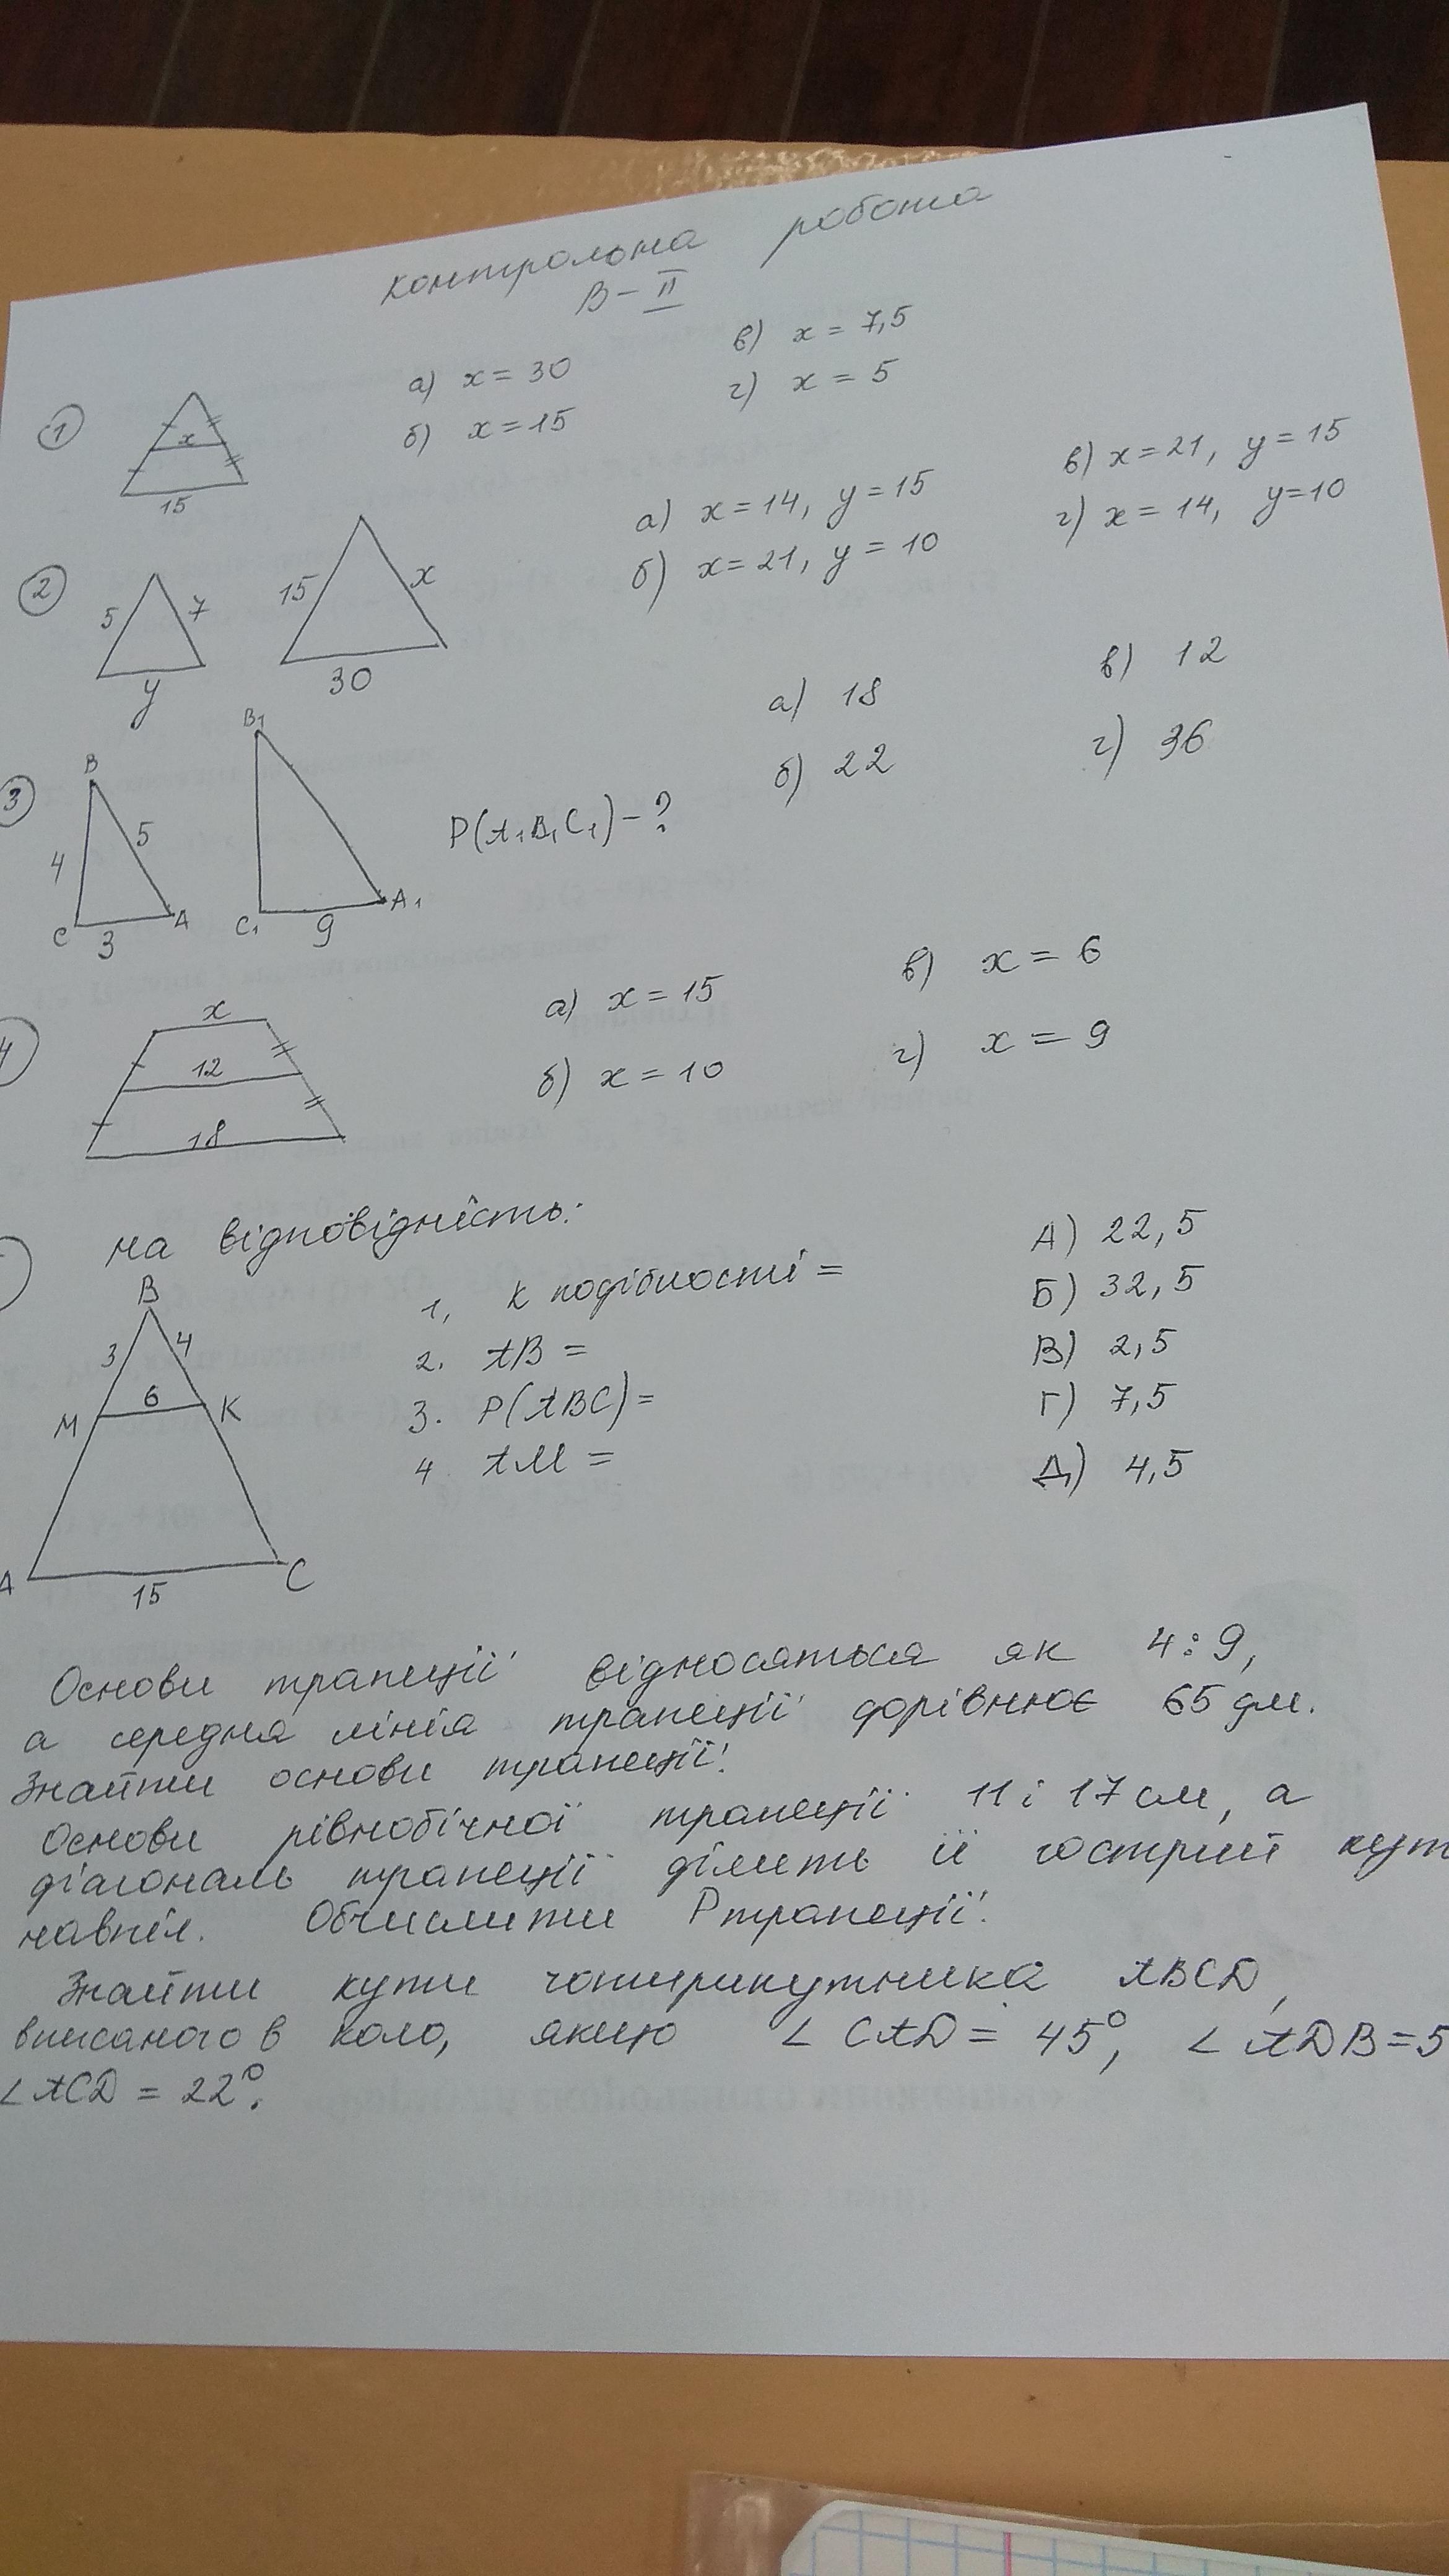 контрольна робота
В-II
1
x
15
а) x = 30
б) x = 15
в) x = 7,5
г) x = 5
2
5
7
y
15
x
30
а) x = 14, y = 15
б) x = 21, y = 10
в) x = 21, y = 15
г) x = 14, y = 10
3
B
4
5
C
3
A
B₁
C₁
9
A₁
P(A₁B₁C₁) - ?
а) 18
б) 22
в) 12
г) 36
4
x
12
18
а) x = 15
б) x = 10
в) x = 6
г) x = 9
на відповідність:
B
3
4
M
6
K
A
15
C
1, k подібності =
2. AB =
3. P(ABC) =
4 AM =
А) 22,5
Б) 32,5
В) 2,5
Г) 7,5
Д) 4,5
Основи трапеції відносяться як 4:9,
а середня лінія трапеції дорівнює 65 дм.
Знайти основи трапеції.
Основи рівнобічної трапеції 11 і 17 см, а
діагональ трапеції ділить її гострий кут
навпіл. Обчислити Pтрапеції.
Знайти кути чотирикутника ABCD,
вписаного в коло, якщо ∠CAD = 45°, ∠ADB = 5
∠ACD = 22°.